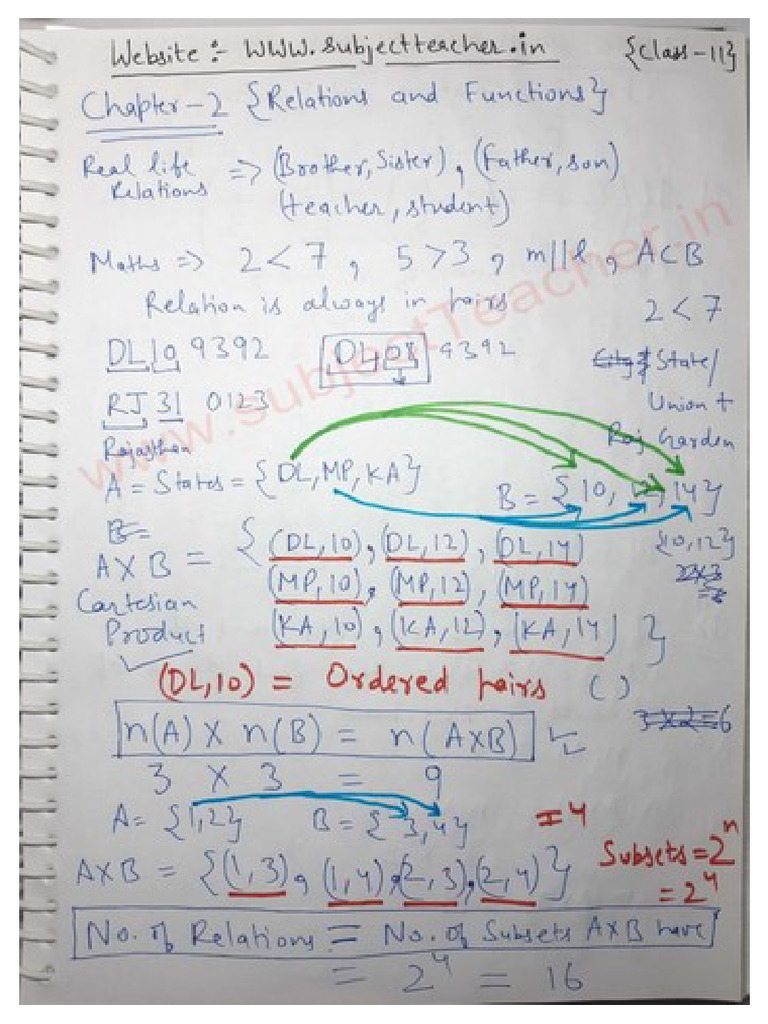 Website :- WWW.subjectteacher.in {Class-11}
Chapter-2 {Relations and Functions}
Real life Relations => (Brother, Sister), (Father, son)
(teacher, student)
Maths => 2 < 7 , 5 > 3 , m||l , A⊂B
Relation is always in pairs 2 < 7
DL10 9392 DL08 9392
City & State/
RJ 31 0123 Union +
Rajasthan Raj Garden
A = States = {DL, MP, KA} B = {10, 12, 14}
B =
A X B = { (DL, 10), (DL, 12), (DL, 14) {10, 12}
(MP, 10), (MP, 12), (MP, 14)
Cartesian Product (KA, 10), (KA, 12), (KA, 14) }
(DL, 10) = Ordered pairs ( )
n(A) X n(B) = n(AXB) 3 X 2 = 6
3 X 3 = 9
A = {1,2} B = {3,4} = 4
Subsets = 2^n
A X B = {(1,3), (1,4), (2,3), (2,4)} = 2^4
No. of Relations = No. of Subsets AXB have
= 2^4 = 16
www.subjectTeacher.in